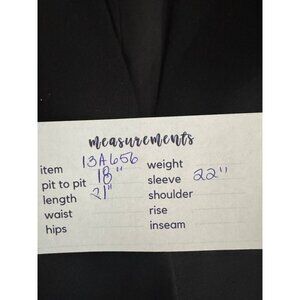 measurements
item 13A656 weight
pit to pit 18" sleeve 22"
length 21" shoulder
waist rise
hips inseam